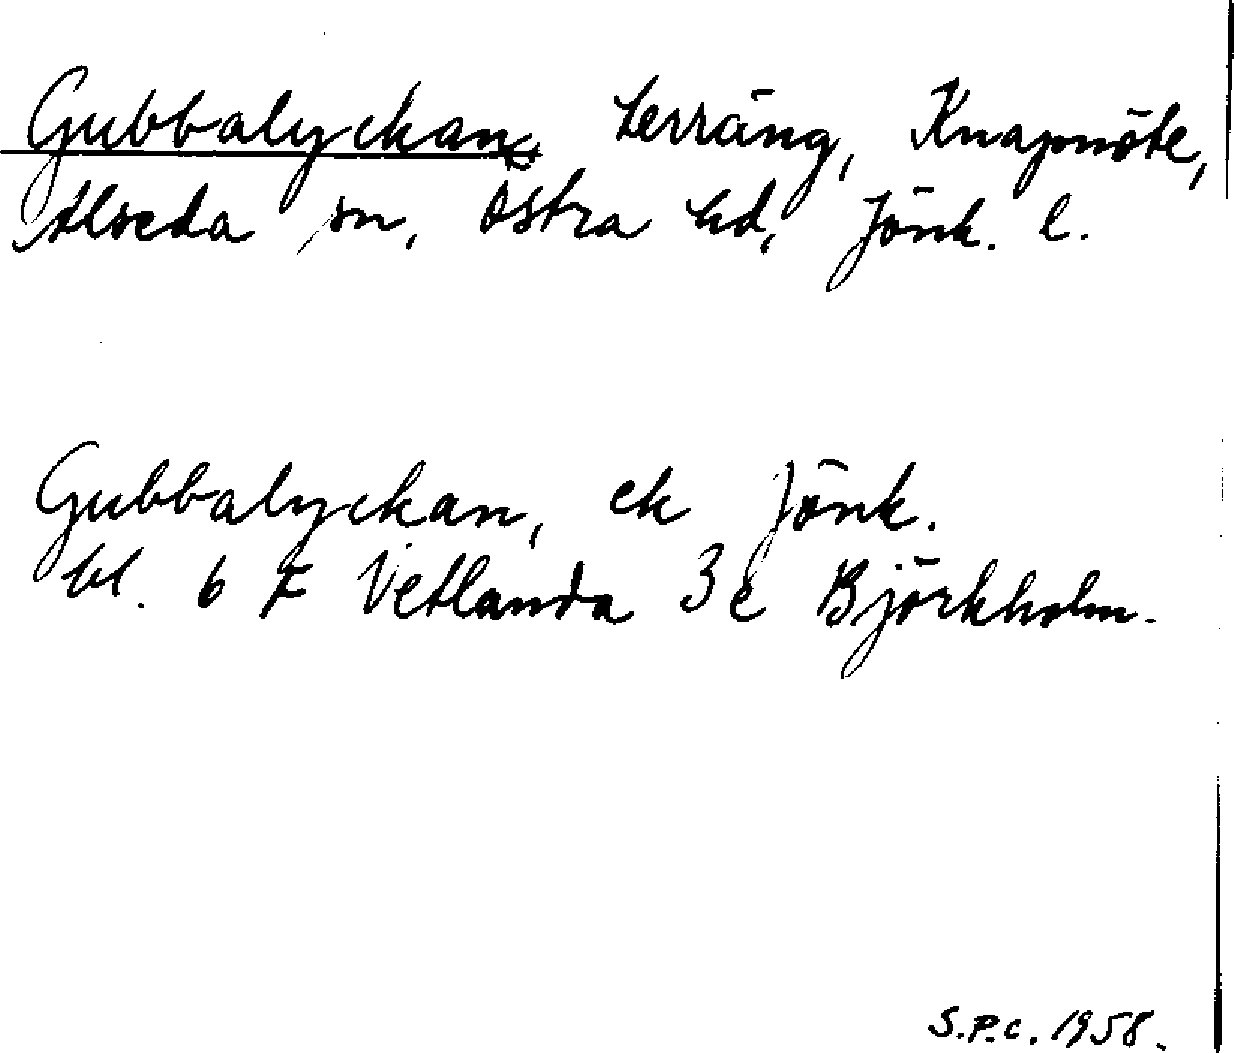 Gubbalyckan, terräng, Knapnöte,
Alseda sn, Östra hd, Jönk. l.
Gubbalyckan, ek Jönk.
bl. 6 F Vetlanda 3 e Björkholm.
S.P.C. 1958.